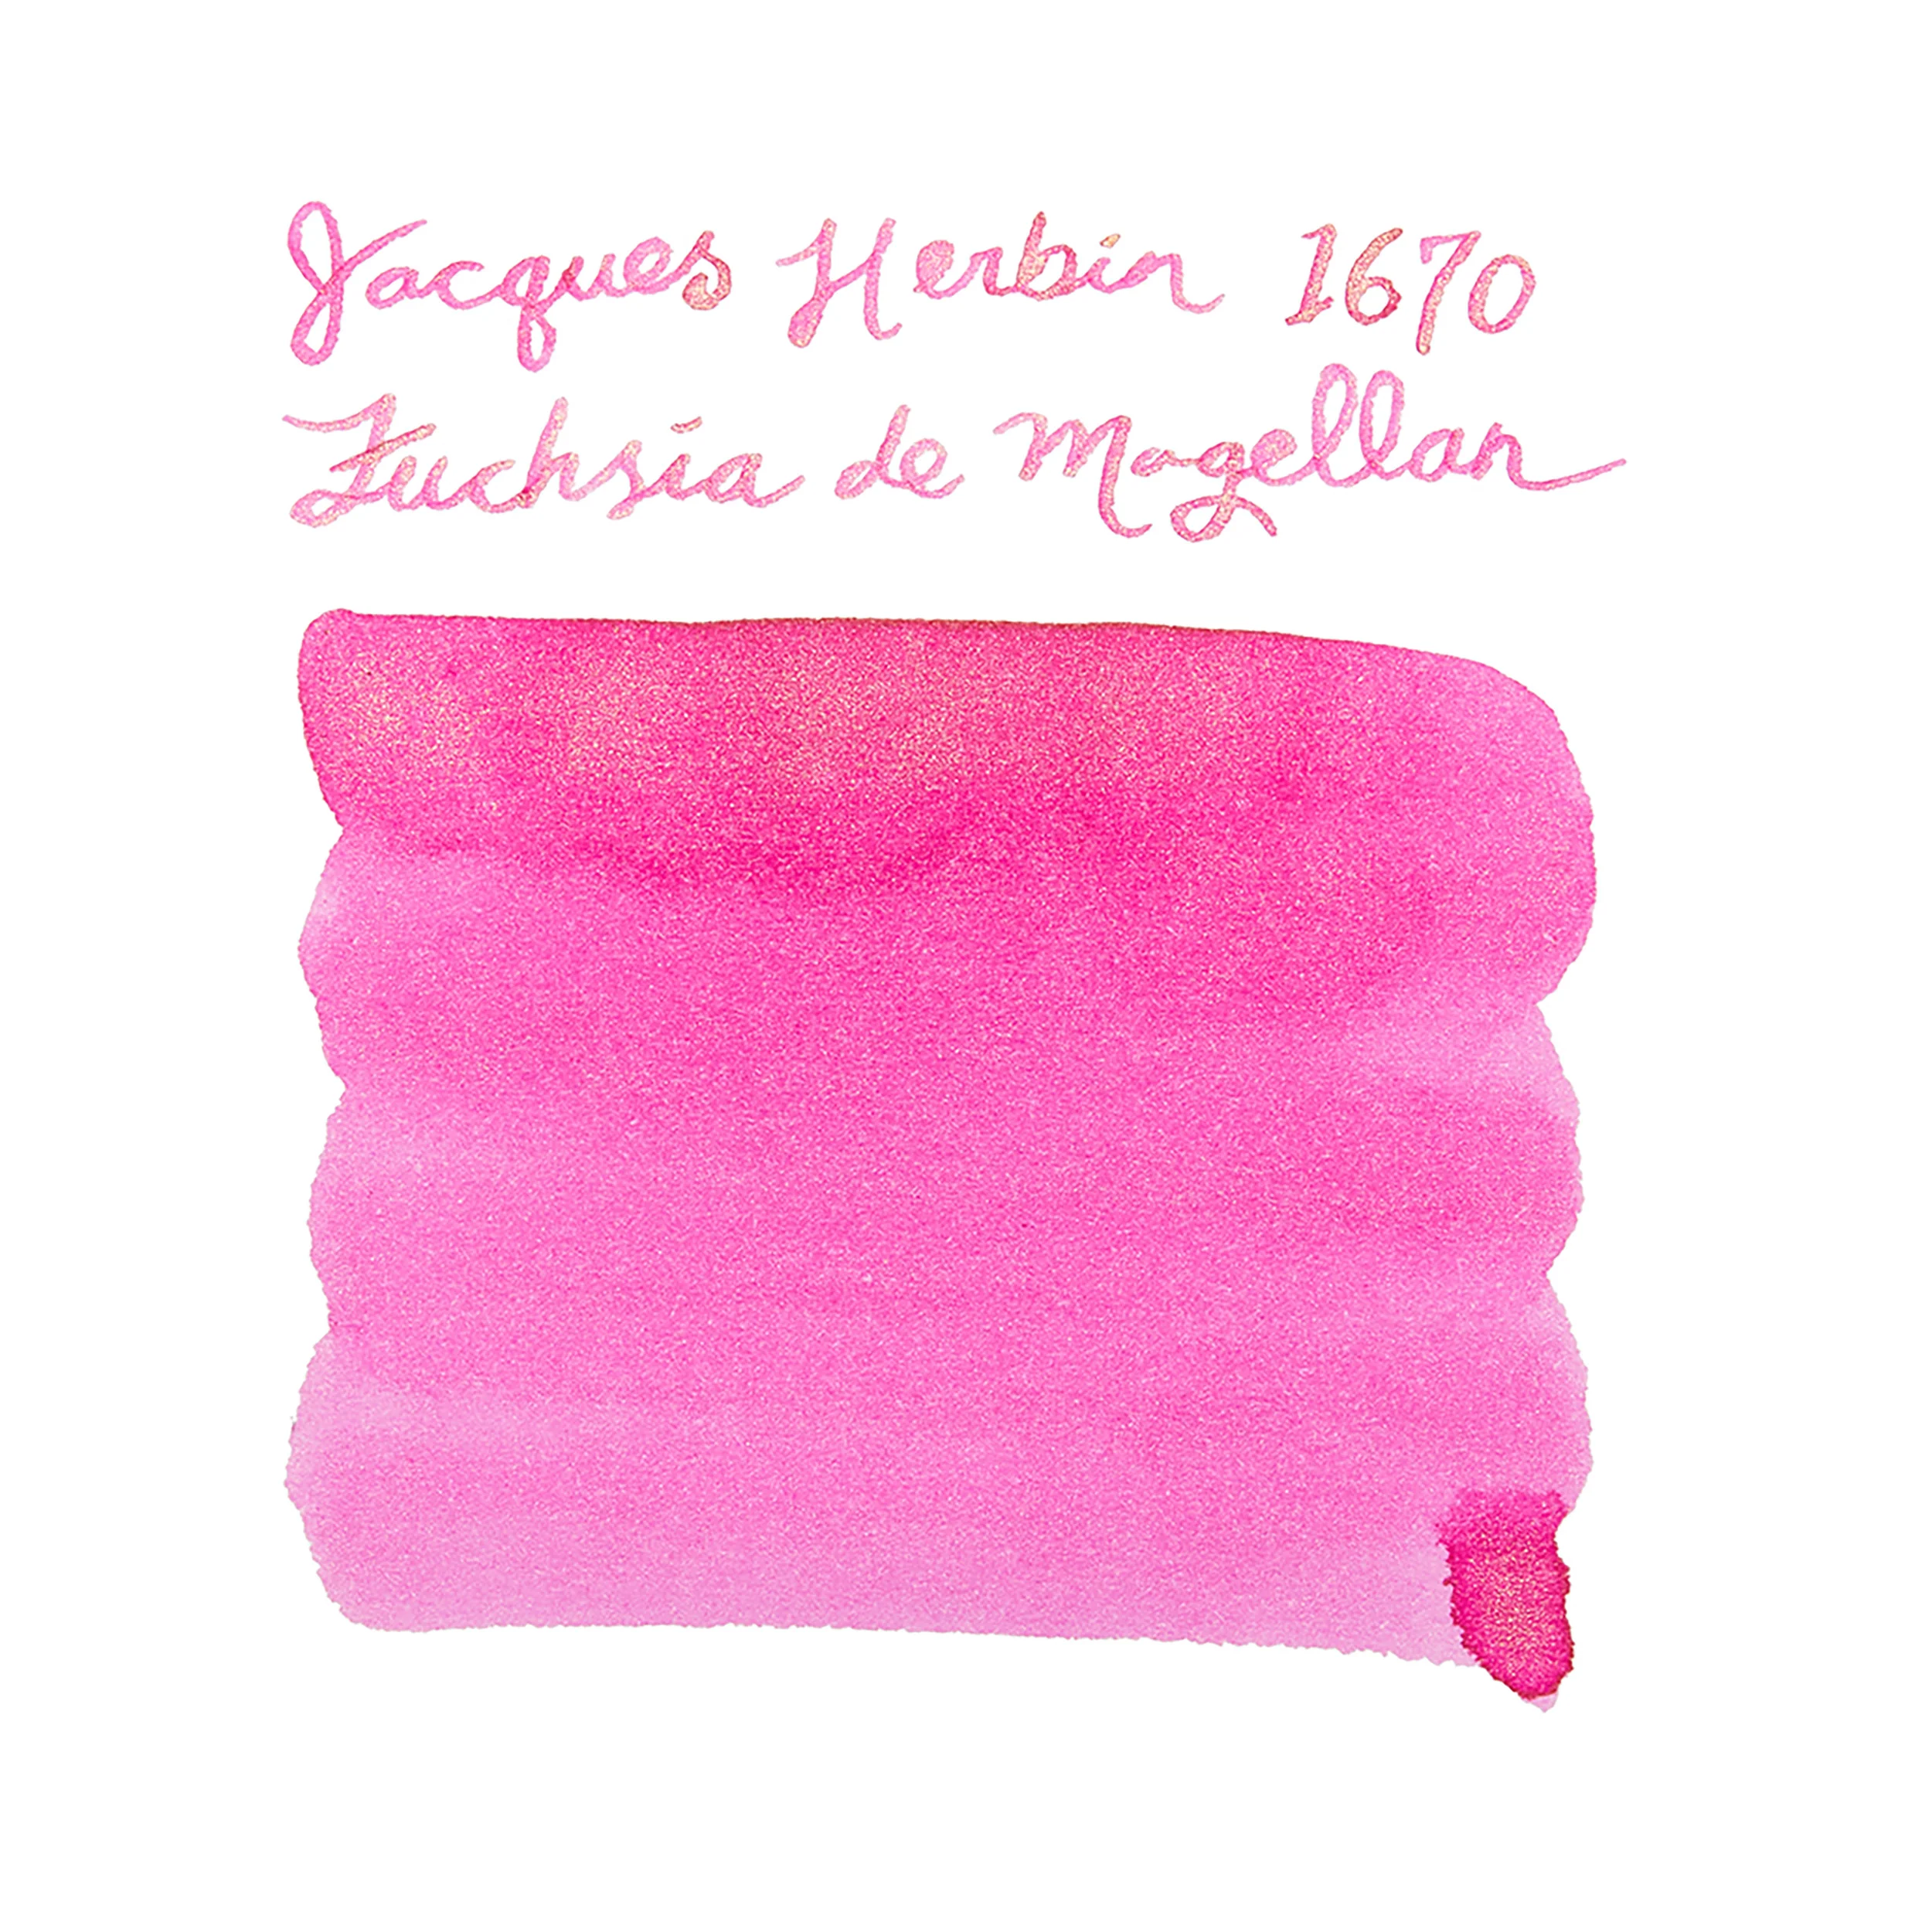 Jacques Herbin 1670
Fuchsia de Magellan